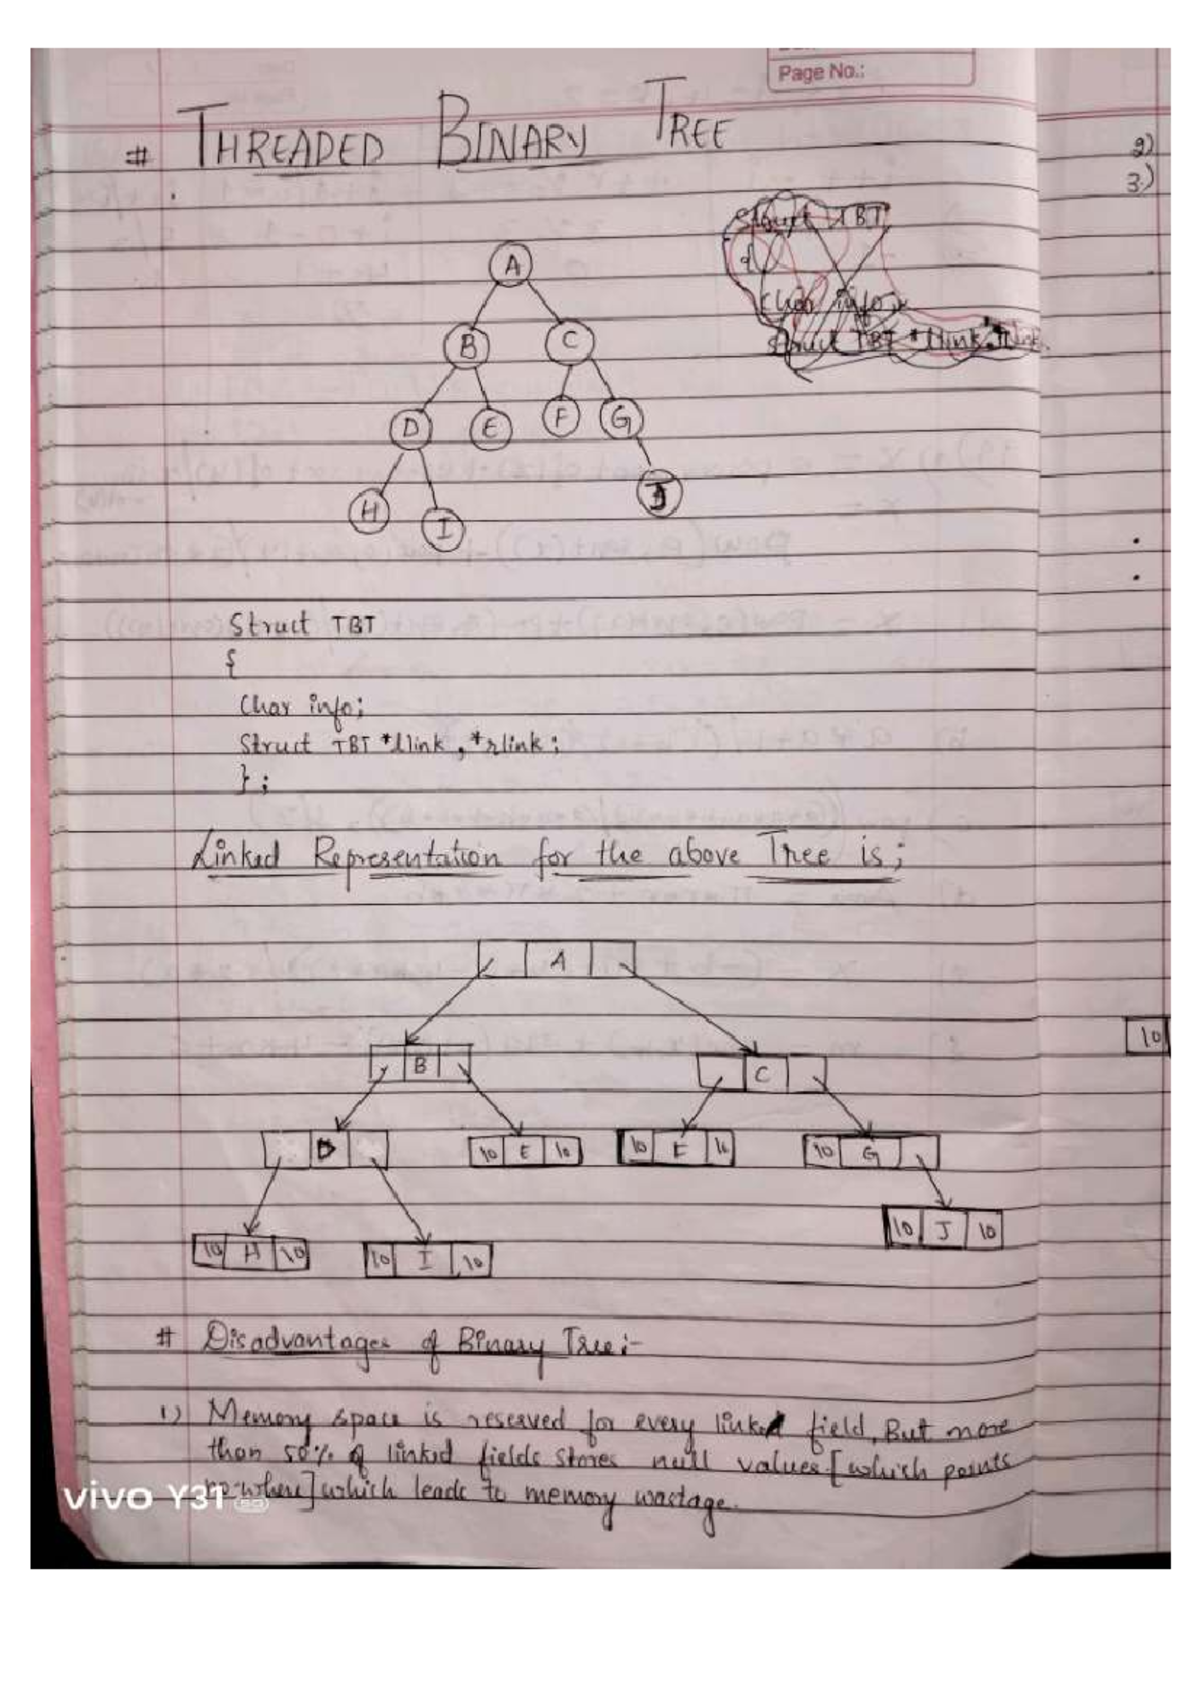 Page No.:
# THREADED BINARY TREE
2)
3)
Struct TBT
{
Char info;
Struct TBT *llink, *rlink.
A
B C
D E F G
H I J
Struct TBT
{
Char info;
Struct TBT *llink, *rlink;
};
Linked Representation for the above Tree is;
A
B C
10
D 10 E 10 10 E 10 10 G
10 H 10 10 I 10 10 J 10
# Disadvantages of Binary Tree:-
1) Memory space is reserved for every linked field, But more
than 50% of linked fields stores null values [which points
no-where] which leads to memory wastage.
vivo Y31